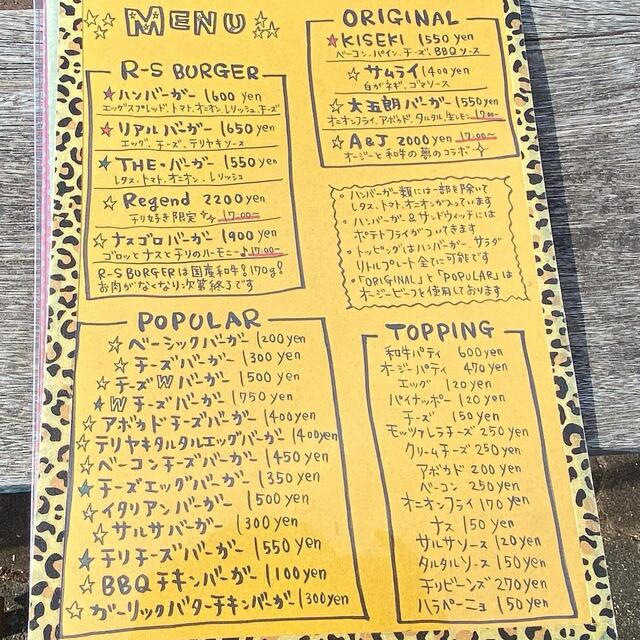 MENU
R-S BURGER
★ハンバーガー 1600yen
エッグスプレッド、トマト、オニオン、レリッシュ、チーズ
★リアルバーガー 1650yen
エッグ、チーズ、テリヤキソース
★THE・バーガー 1550yen
レタス、トマト、オニオン、レリッシュ
☆Regend 2200yen
チリ好き限定 17:00～
☆ナスゴロバーガー 1900yen
ゴロッとナスとチリのハーモニー♪ 17:00～
R-S BURGERは国産和牛!170g!
お肉がなくなり次第終了です
ORIGINAL
★KISEKI 1550yen
ベーコン、パイン、チーズ、BBQソース
☆サムライ 1400yen
白ガネギ、ゴマソース
☆大五朗バーガー 1550yen
オニオンフライ、アボカド、タルタル、生レモン 17:00～
☆A&J 2000yen 17:00～
オージーと和牛の夢のコラボ
・ハンバーガー類には一部を除いて
レタス、トマト、オニオンが入っています
・ハンバーガー&サンドウィッチには
ポテトフライがついてきます
・トッピングはハンバーガー、サラダ
リトルプレート全てに可能です
・「ORIGINAL」と「POPULAR」は
オージービーフを使用しております
POPULAR
☆ベーシックバーガー 1200yen
☆チーズバーガー 1300yen
☆チーズWバーガー 1500yen
★Wチーズバーガー 1750yen
☆アボカドチーズバーガー 1400yen
☆テリヤキタルタルエッグバーガー 1400yen
☆ベーコンチーズバーガー 1450yen
★チーズエッグバーガー 1350yen
☆イタリアンバーガー 1500yen
☆サルサバーガー 1300yen
★チリチーズバーガー 1550yen
☆BBQチキンバーガー 1100yen
☆ガーリックバターチキンバーガー 1300yen
TOPPING
和牛パティ 600yen
オージーパティ 470yen
エッグ 120yen
パイナッポー 120yen
チーズ 150yen
モッツァレラチーズ 250yen
クリームチーズ 250yen
アボカド 200yen
ベーコン 250yen
オニオンフライ 170yen
ナス 150yen
サルサソース 120yen
タルタルソース 150yen
チリビーンズ 270yen
ハラペーニョ 150yen